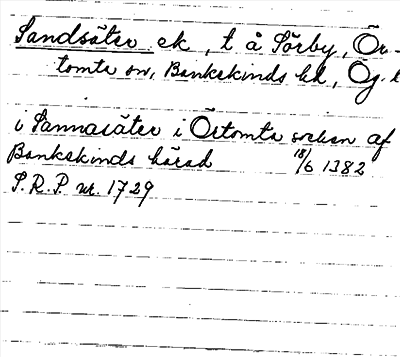 Sandsäter ek, t å Sörby, Ör-
tomta sn, Bankekinds hd, Ög l
i Sannasäter i Örtomta sokn af
Bankekinds härad 18/6 1382
S.R.P. nr. 1729